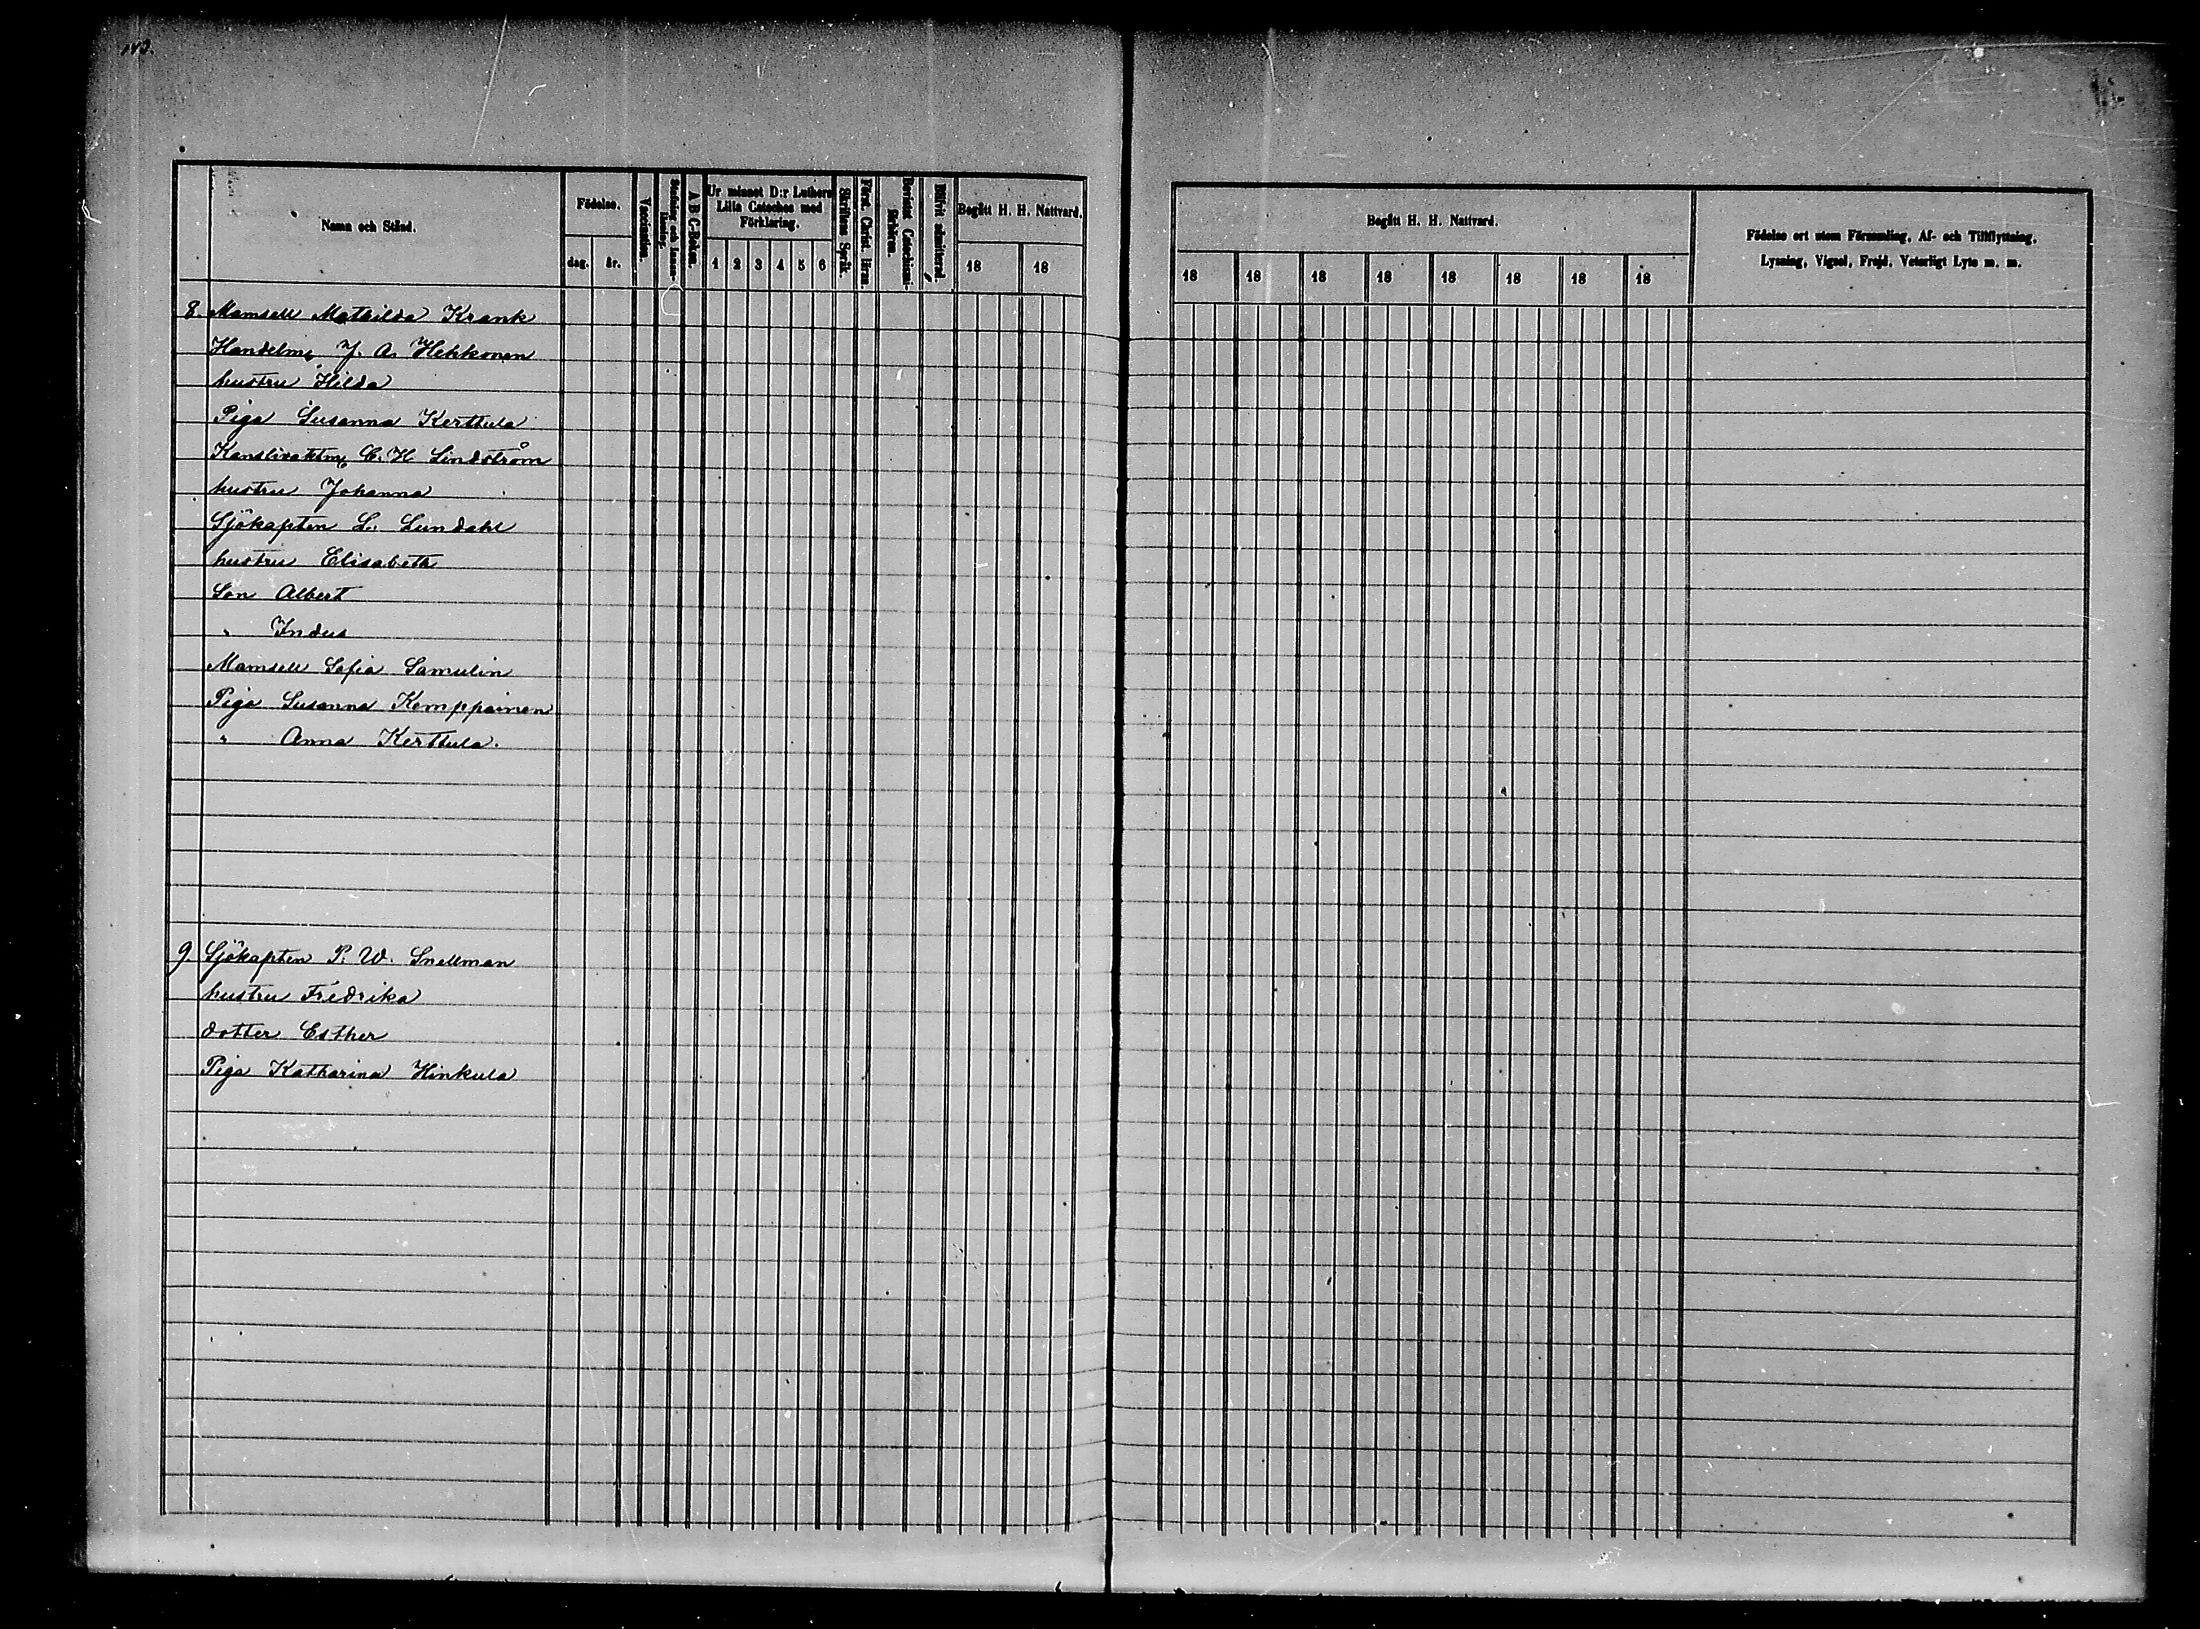 143.
Namn och Stånd.
Födelse.
dag.
år.
Vaccination.
Stafning och Innan-läsning.
A B C-Boken.
Ur minnet D:r Luthers
Lilla Cateches med
Förklaring.
1 2 3 4 5 6
Skriftens Språk.
Först. Christ. läran.
Bevistat Catechismi-förhören.
Blifvit admitterad.
Begått H. H. Nattvard.
18 18
Begått H. H. Nattvard.
18 18 18 18 18 18 18 18
Födelse ort utom Församling, Af- och Tillflyttning,
Lysning, Vigsel, Frejd, Veterligt Lyte m. m.
8. Mamsell Mathilda Krank
Handelm J. A. Heikkonen
hustru Hilda
Piga Susanna Kerttula
Kanslivaktm C. H Lindström
hustru Johanna
Sjökapten L. Lundahl
hustru Elisabeth
Son Albert
" Indus
Mamsell Sofia Samulin
Piga Susanna Kemppainen
" Anna Kerttula.
9. Sjökapten P. W. Snellman
hustru Fredrika
dotter Esther
Piga Katharina Hinkula